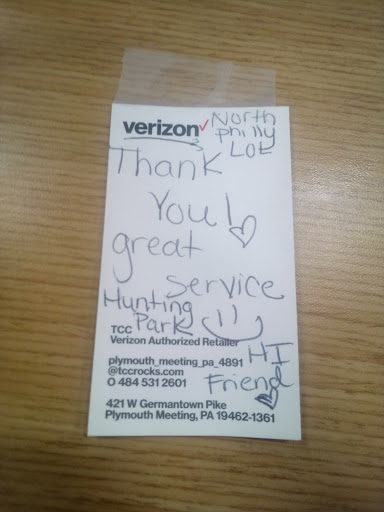 verizon
North
philly
LOL
Thank
You!
great
Service
Hunting
Park
TCC
Verizon Authorized Retailer
plymouth_meeting_pa_4891
@tccrocks.com
O 484 531 2601
HI
Friend
421 W Germantown Pike
Plymouth Meeting, PA 19462-1361